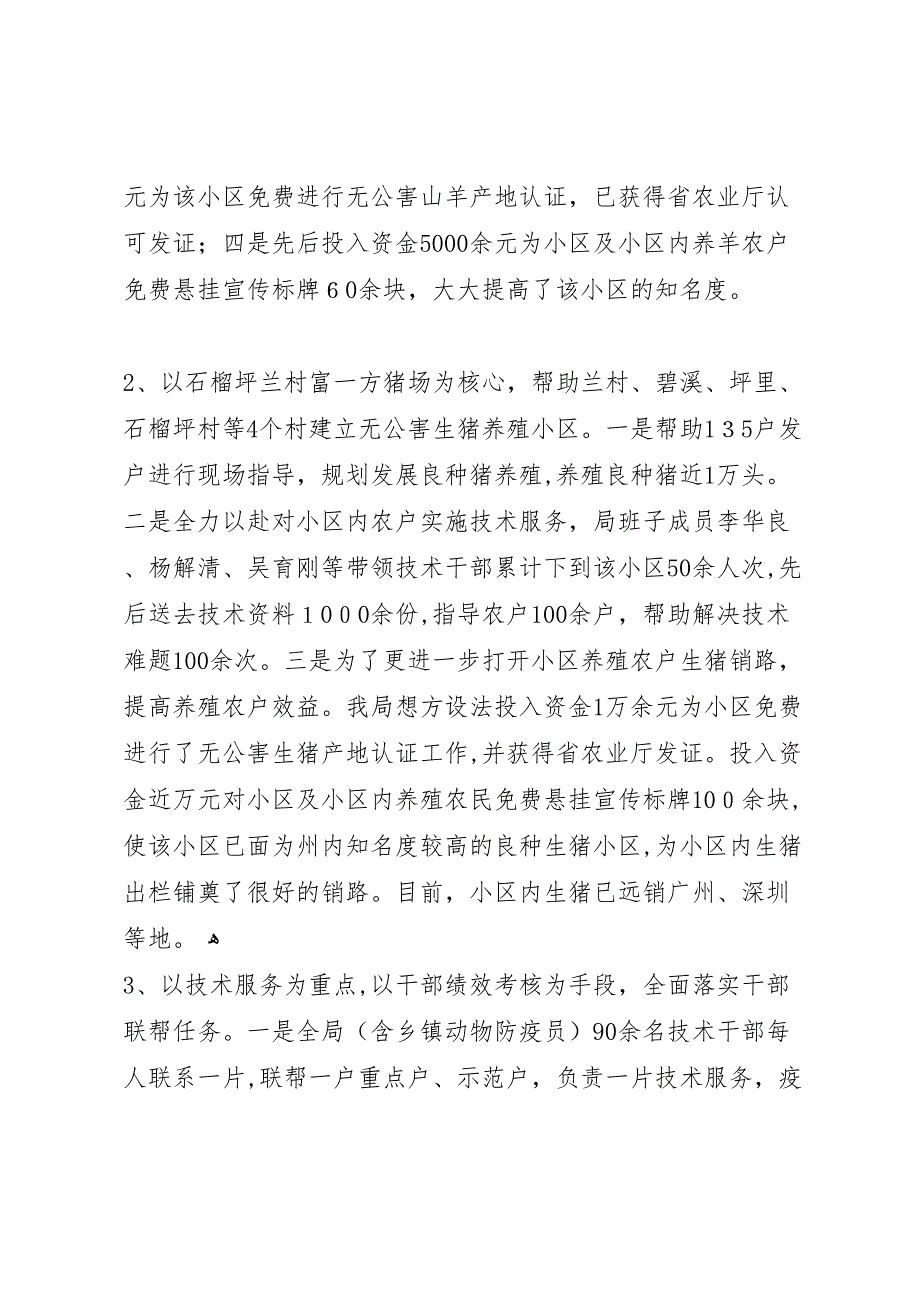 元为该小区免费进行无公害山羊产地认证，已获得省农业厅认
可发证；四是先后投入资金5000余元为小区及小区内养羊农户
免费悬挂宣传标牌６0余块，大大提高了该小区的知名度。
2、以石榴坪兰村富一方猪场为核心，帮助兰村、碧溪、坪里、
石榴坪村等4个村建立无公害生猪养殖小区。一是帮助1３5户发
户进行现场指导，规划发展良种猪养殖,养殖良种猪近1万头。
二是全力以赴对小区内农户实施技术服务，局班子成员李华良
、杨解清、吴育刚等带领技术干部累计下到该小区50余人次,先
后送去技术资料１0００余份,指导农户100余户，帮助解决技术
难题100余次。三是为了更进一步打开小区养殖农户生猪销路，
提高养殖农户效益。我局想方设法投入资金1万余元为小区免费
进行了无公害生猪产地认证工作,并获得省农业厅发证。投入资
金近万元对小区及小区内养殖农民免费悬挂宣传标牌10０余块,
使该小区已面为州内知名度较高的良种生猪小区,为小区内生猪
出栏铺奠了很好的销路。目前，小区内生猪已远销广州、深圳
等地。 ﻫ
3、以技术服务为重点,以干部绩效考核为手段，全面落实干部
联帮任务。一是全局（含乡镇动物防疫员）90余名技术干部每
人联系一片,联帮一户重点户、示范户，负责一片技术服务，疫